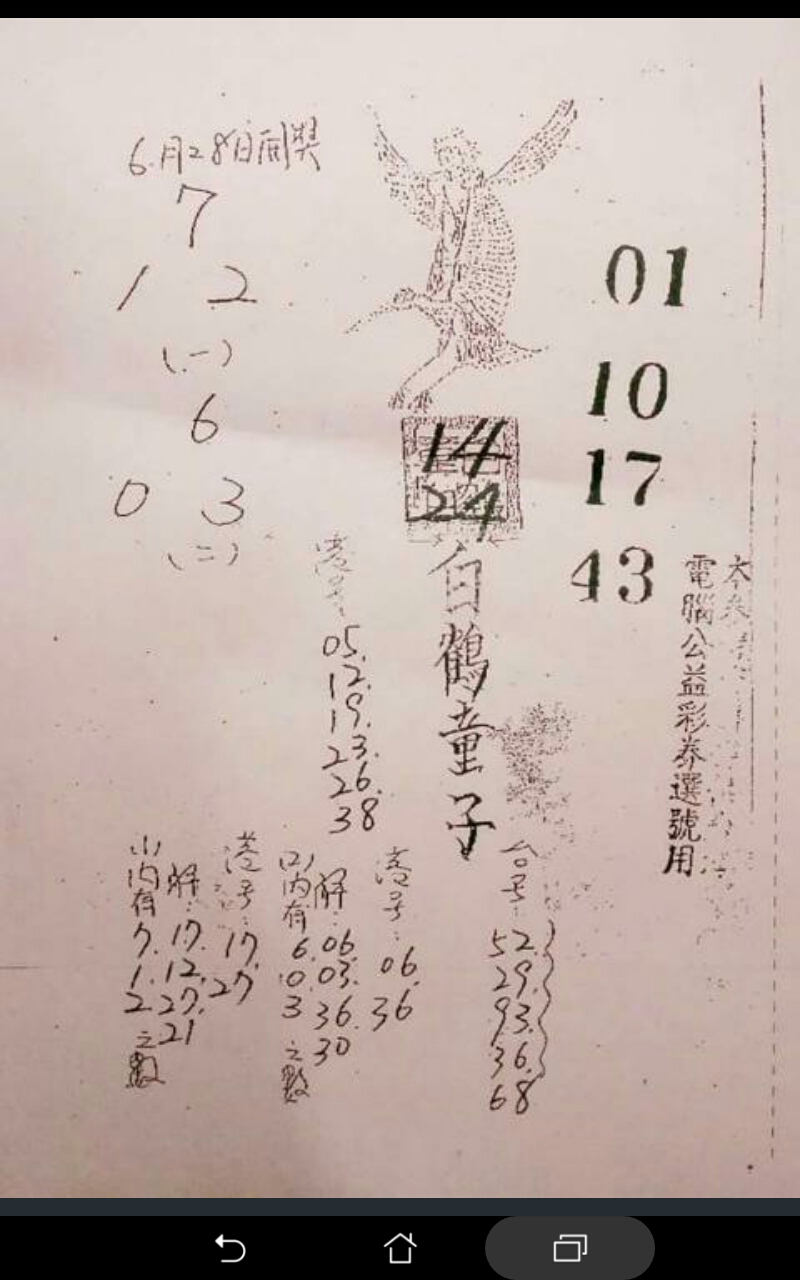 6月28日開獎
7
1 2
(一)
6
0 3
(二)
01
10
17
43
14
24
白鶴童子
電腦公益彩券選號用
港号:
05.
12.
19.
23.
26.
38
台号:
52.
29.
93.
36.
68
港号:
06.
36
解:
06.
03.
36.
30
(2)內有
6.
0.
3
之數
港号:
17.
27
解:
17.
12.
27.
21
(1)內有
7.
1.
2
之數